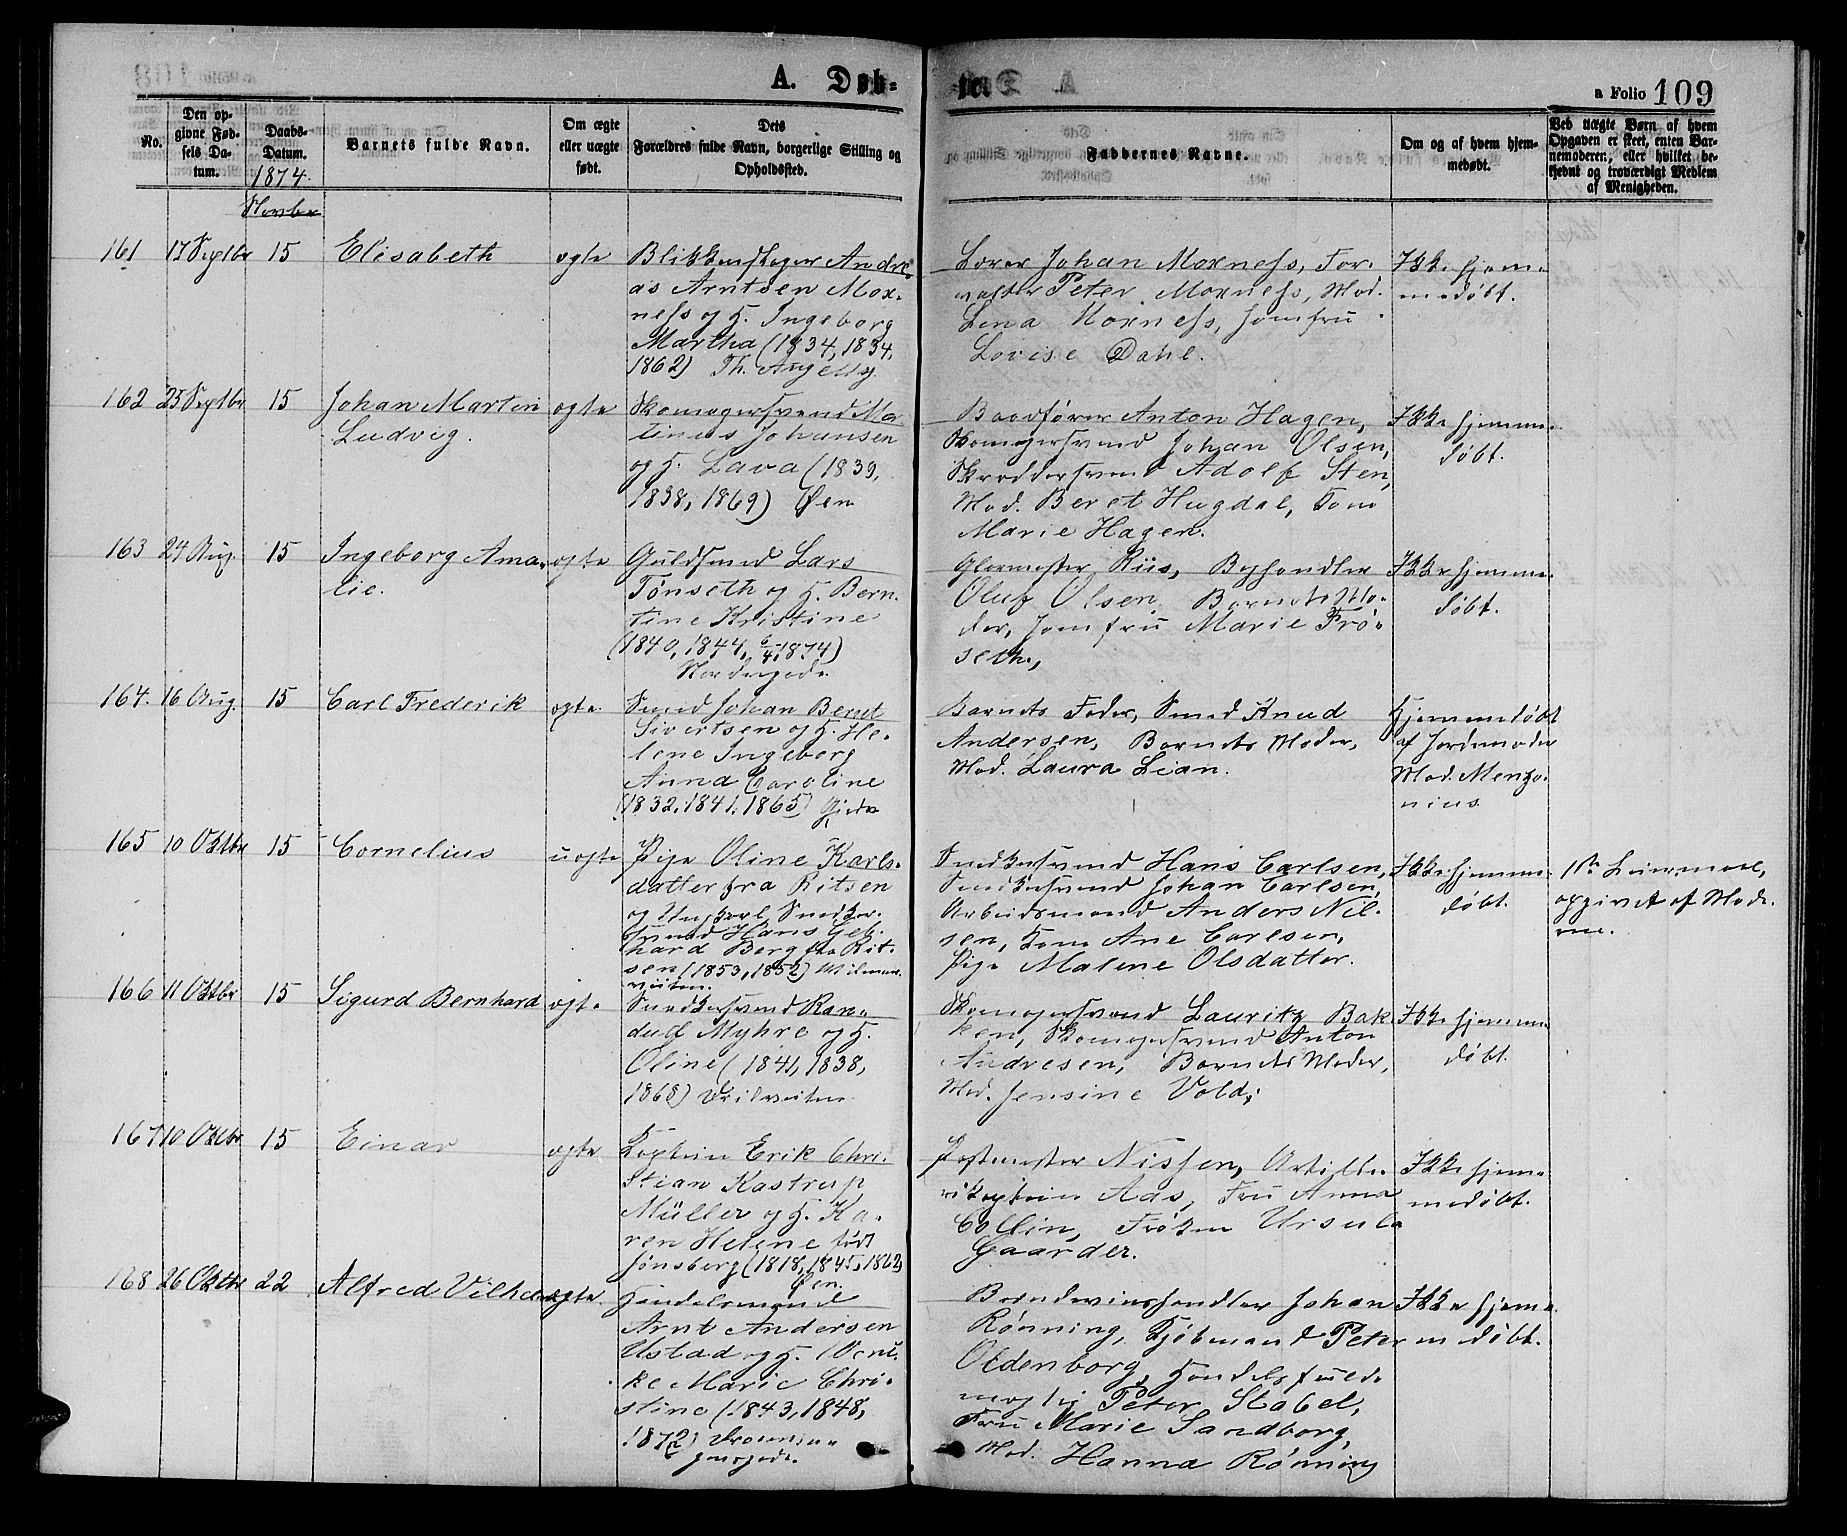 A. Døb-
te.
a Folio 109
No.
Den op-
givne Fød-
sels Da-
tum.
Daabs-
Datum.
1874.
Barnets fulde Navn.
Om ægte
eller uægte
født.
Dets
Forældres fulde Navn, borgerlige Stilling og
Opholdssted.
Faddernes Navne.
Om og af hvem hjem-
medøbt.
Ved uægte Børn af hvem
Opgaven er skeet, enten Bar-
nemoderen, eller hvilket be-
kjendt og troværdigt Medlem
af Menigheden.
Novbr
161 17 Septbr 15 Elisabeth ægte
Blikkenslager Andre-
as Arntsen Mox-
ness og H. Ingeborg
Martha (1834, 1834,
1862) Th. Angellg.
Lærer Johan Moxness, For-
valter Peter Moxness, Mad.
Lena Moxness, Jomfru
Lovise Dahl.
Ikke hjem-
medøbt.
162 25 Septbr 15 Johan Martin
Ludvig.
ægte
Skomagersvend Ma
tinus Johansen
og H. Lava (1839,
1838, 1869) Øen
Baadfører Anton Hagen,
Skomagersvend Johan Olsen,
Skræddersvend Adolf Sten,
Mad. Beret Hugdal, Kone
Marie Hagen.
Ikke hjemme-
døbt.
163 24 Aug. 15 Ingeborg Ama-
lie.
ægte
Guldsmed Lars
Tønseth og H. Bern-
tine Kristine
(1840, 1844, 6/4 1874)
Nordregade.
Glarmester Riis, Boghandler
Oluf Olsen, Barnets Mo-
der, Jomfru Marie Frø-
seth,
Ikke hjemme-
døbt.
164. 16 Aug. 15 Carl Frederik ægte.
Smed Johan Bernt
Sivertsen og H. He-
lene Ingeborg
Anna Caroline
(1832, 1841, 1865)
Barnets Fader, Smed Knud
Andersen, Barnets Moder,
Mad. Laura Lian.
Hjemmedøbt
af Jordemoder
Mad. Menzo-
nius.
165 10 Oktbr 15 Cornelius uægte
Pige Oline Karls-
datter fra Ritsen
og Ungkarl Snedker-
svend Hans Geb-
hard Berg fra Rit-
sen (1853, 1852)
Snedkersvend Hans Carlsen,
Snedkersvend Johan Carlsen,
Arbeidsmand Anders Nil-
sen, Kone Ane Carlsen,
Pige Malene Olsdatter.
Ikke hjemme-
døbt.
1ste Leiermaal,
opgivet af Mode-
ren.
166 11 Oktbr 15 Sigurd Bernhard ægte
Snedkersvend Ran-
dud Myhre og H.
Oline (1841, 1838,
1868)
Skomagersvend Lauritz Bak
ken, Skomagersvend Anton
Andresen, Barnets Moder,
Mad. Jensine Vold,
Ikke hjemme-
døbt.
167 10 Oktbr 15 Einar ægte
Kaptein Erik Chri-
stian Kastrup
Müller og H. Ka-
ren Helene født
Jønsberg (1818, 1845, 1862)
Øen.
Postmester Nissen, Artille-
rikaptein Aas, Fru Anna
Collin, Frøken Ursula
Gaarder.
Ikke hjem-
medøbt.
168 26 Oktbr 22 Alfred Vilhelm ægte.
Handelsmand
Arnt Andersen
Ustad og H.
ke Marie Chri-
stine (1843, 1848,
1872) Dronnin-
gensgade.
Brændevinshandler Johan
Rønning, Kjøbmand Peter
Oldenborg, Handelsfuld-
mægtig Peter Stabel,
Fru Marie Sandborg,
Mad. Hanna Rønning
Ikke hjem-
medøbt.